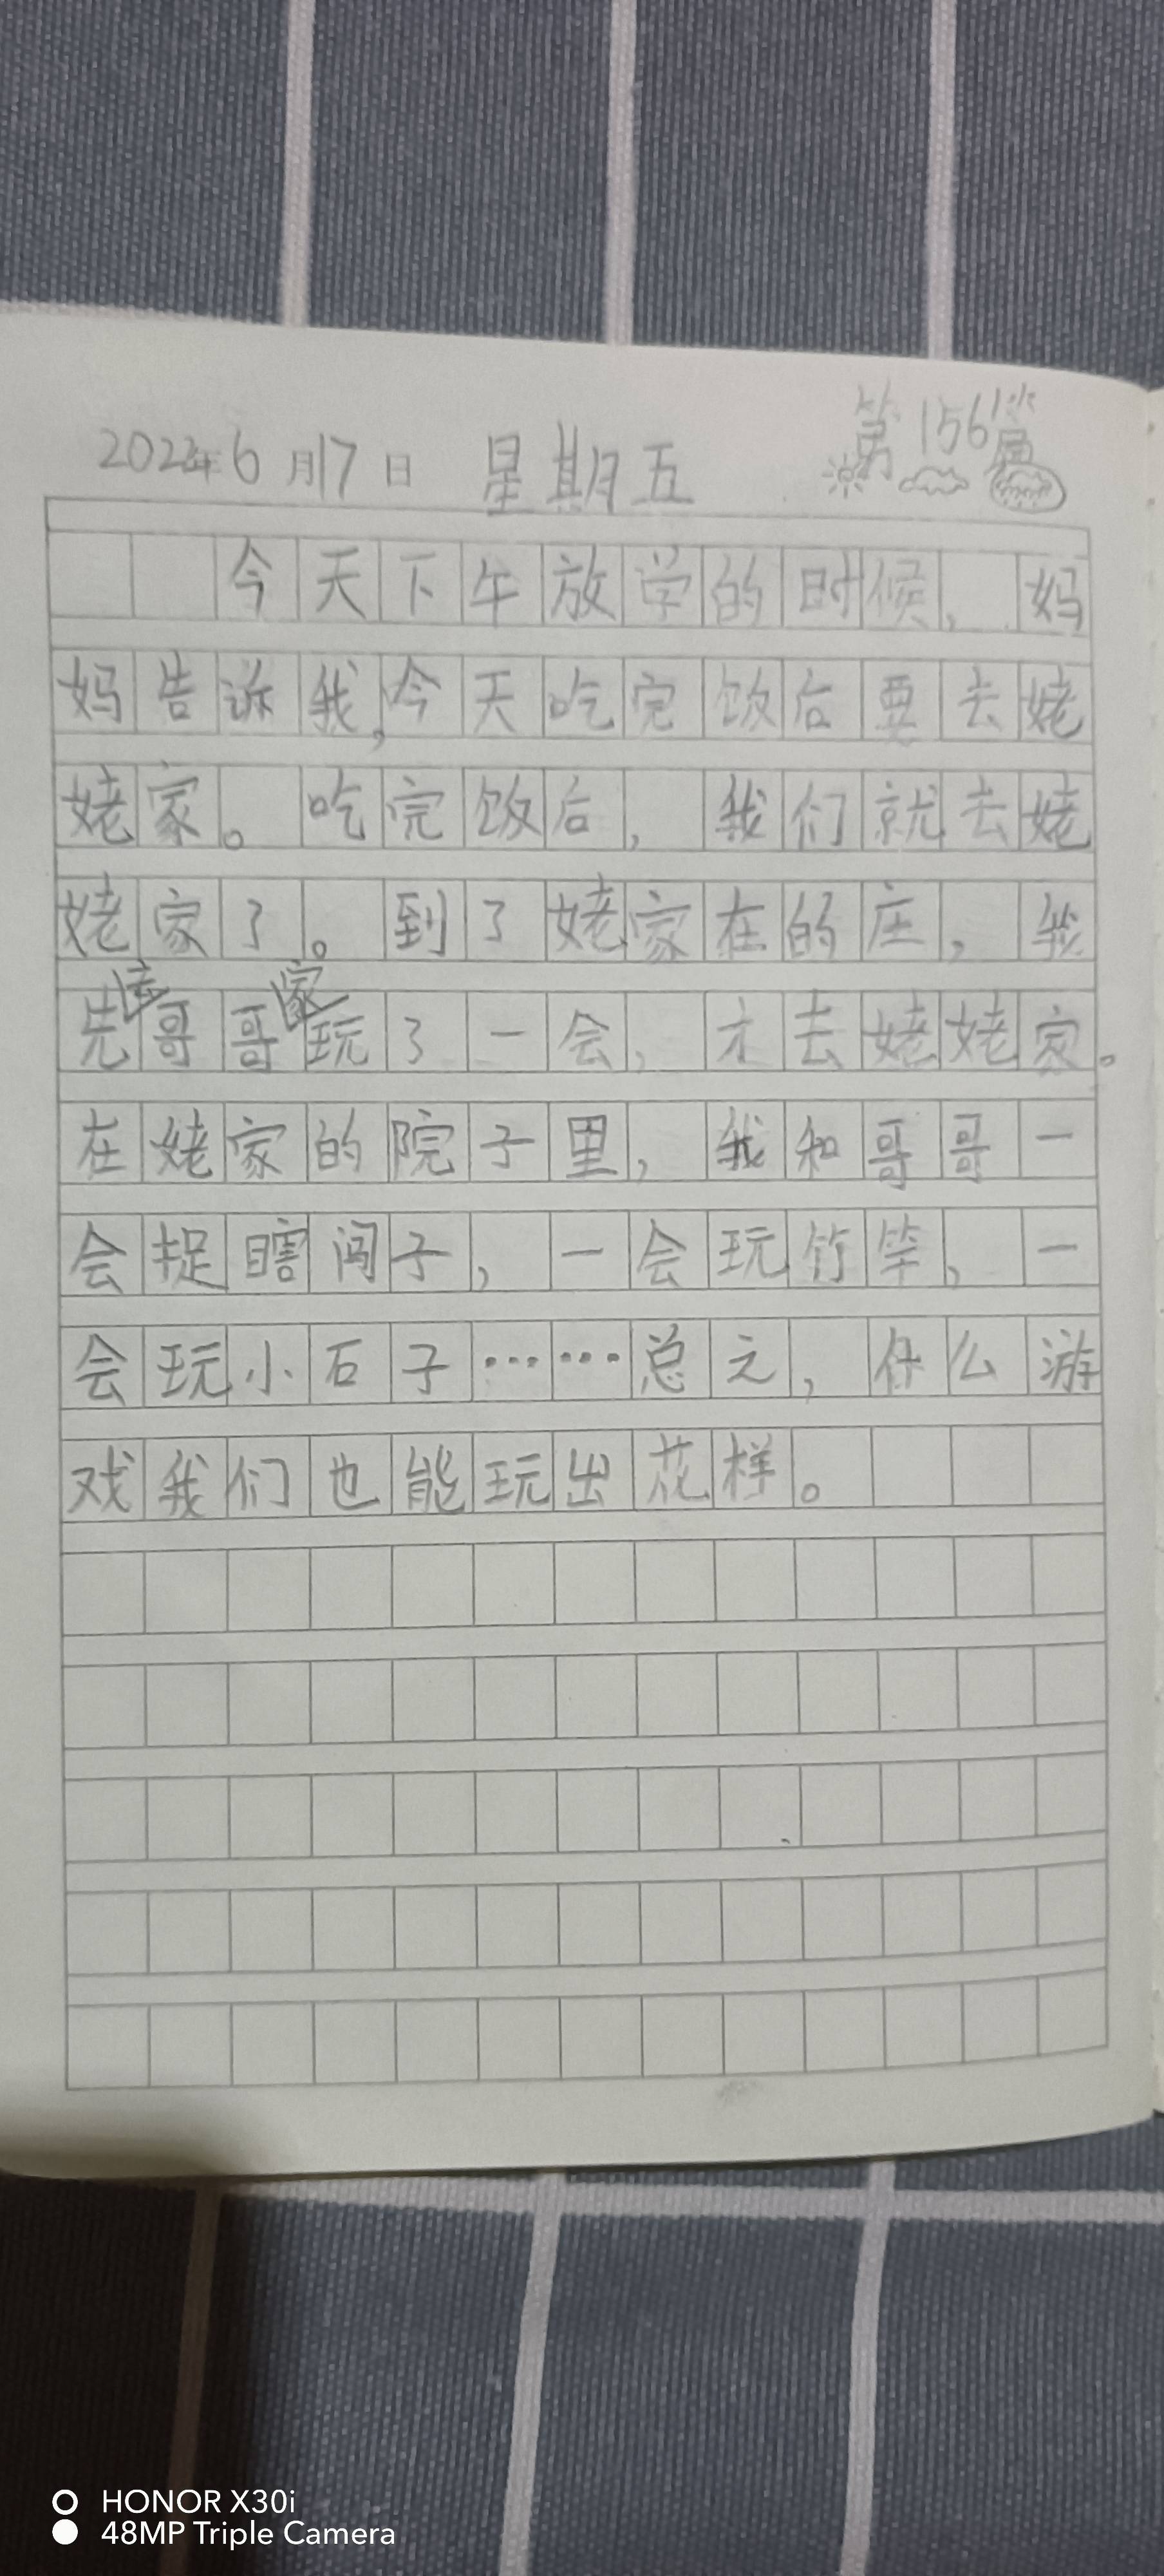 2022年6月17日 星期五 第156篇
今天下午放学的时候，妈
妈告诉我，今天吃完饭后要去姥
姥家。吃完饭后，我们就去姥
姥家了。到了姥家在的庄，我
先去哥哥家玩了一会，才去姥姥家。
在姥家的院子里，我和哥哥一
会捉瞎闯子，一会玩竹竿，一
会玩小石子……总之，什么游
戏我们也能玩出花样。
HONOR X30i
48MP Triple Camera